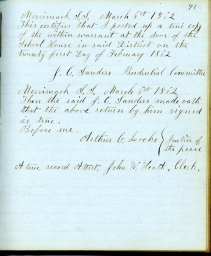 71
Merrimack S.S. March 6th 1852
This certifies that I posted up a true copy
of the within warrant at the door of the
School House in said District on the
twenty first Day of February 1852
J. C. Sanders Prudential Committee
Merrimack S.S. March 6th 1852
Then the said J. C. Sanders made oath
that the above return by him signed
is true.
Before me
Arthur C. Locke } Justice of
the peace
A true record Attest, John W. Heath, Clerk.